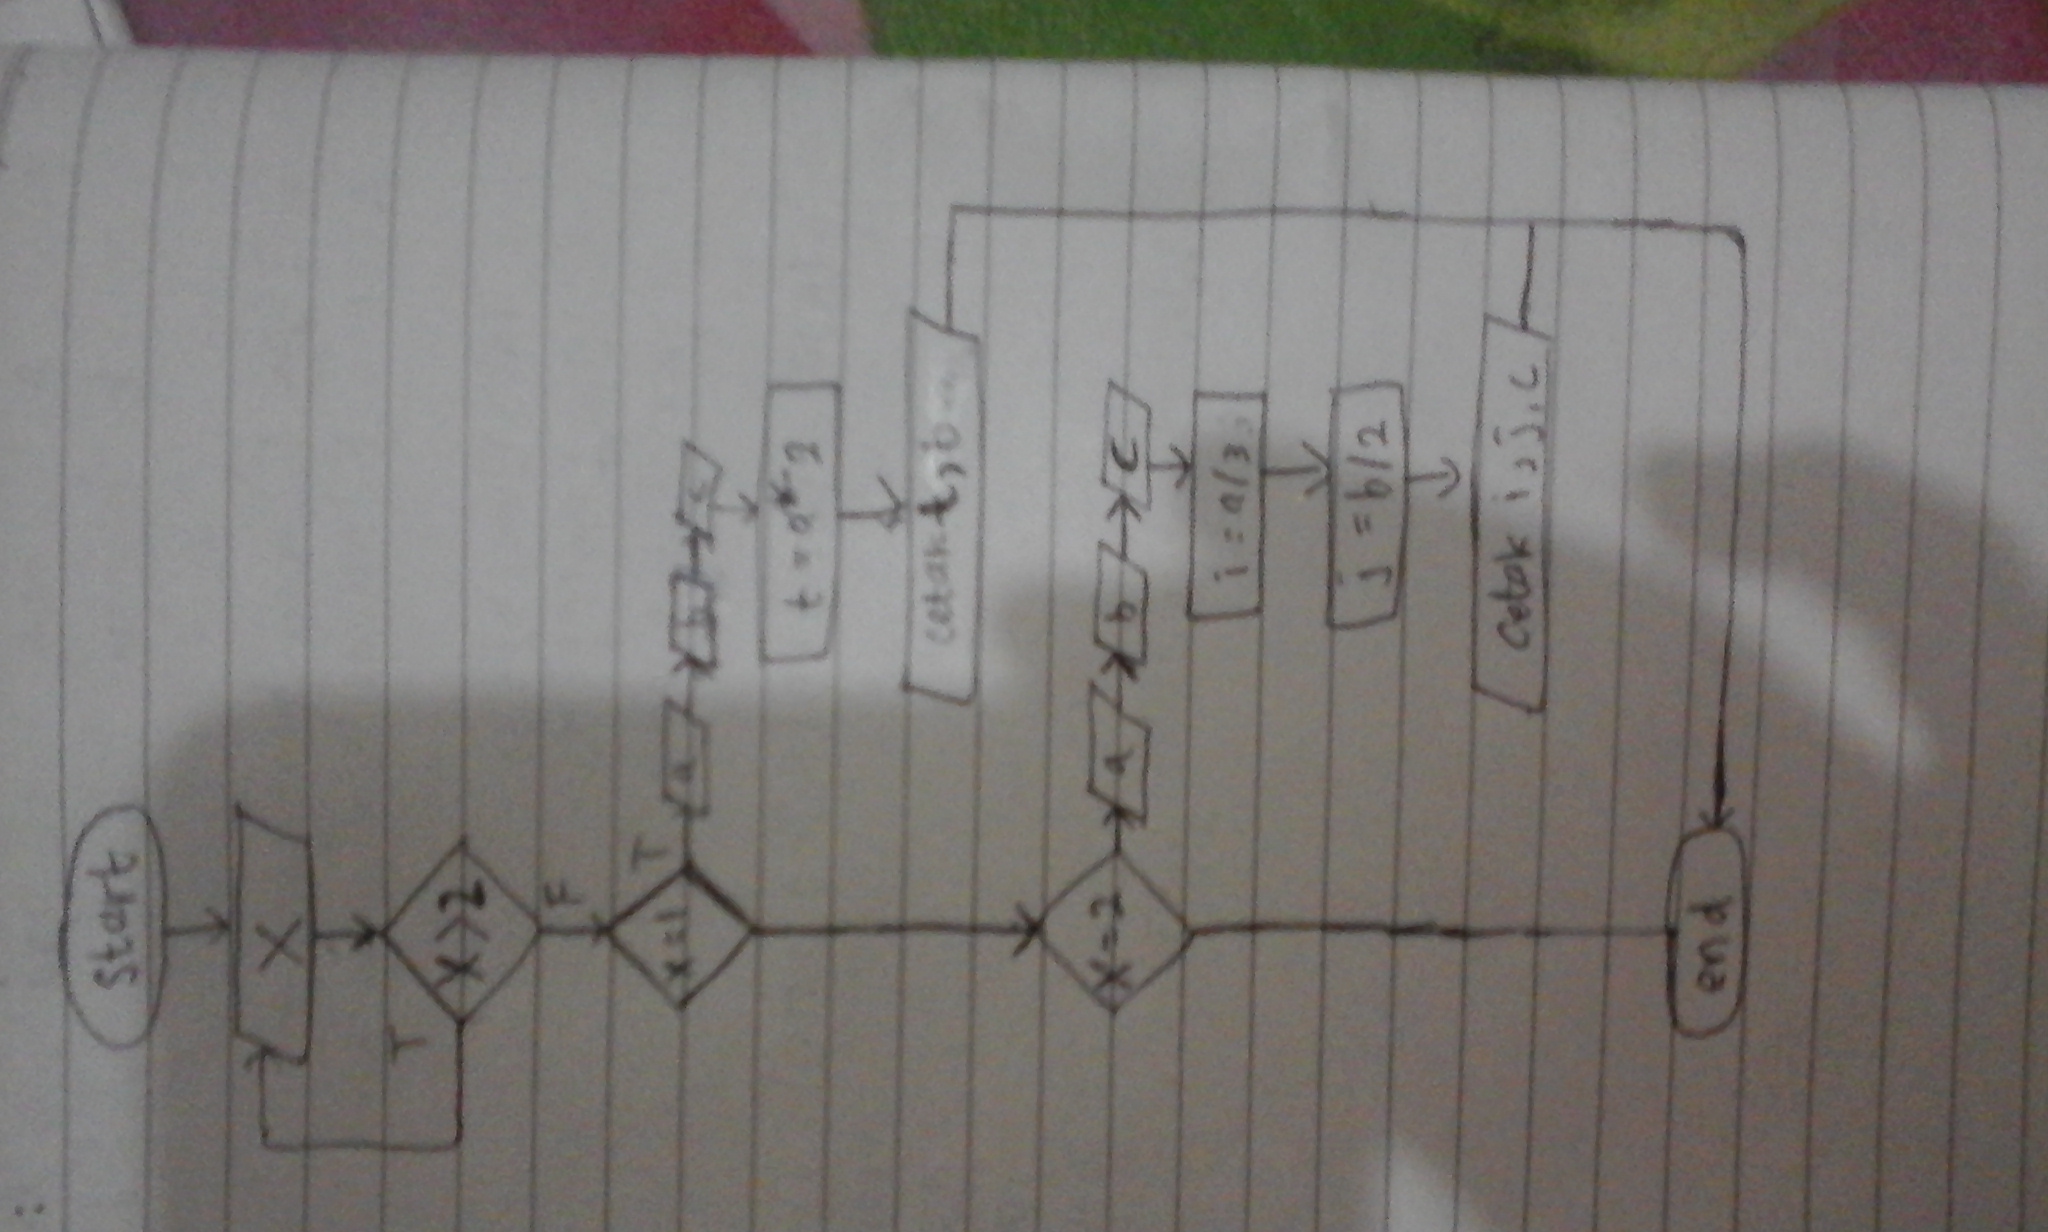 :
start
X
T
X>2
F
x=1
T
a
b
c
t = a* 2
cetak t, b
X=2
a
b
c
i = a/3
j = b/2
cetak i, j, c
end